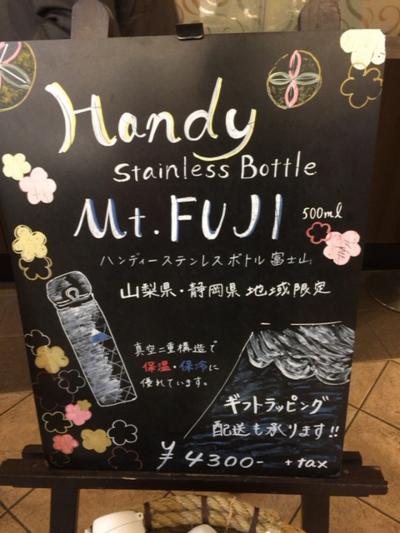 Handy
Stainless Bottle
Mt.FUJI 500ml
ハンディーステンレスボトル富士山
山梨県・静岡県地域限定
真空二重構造で
保温・保冷に
優れています。
ギフトラッピング
配送も承ります!!
¥4300- +tax